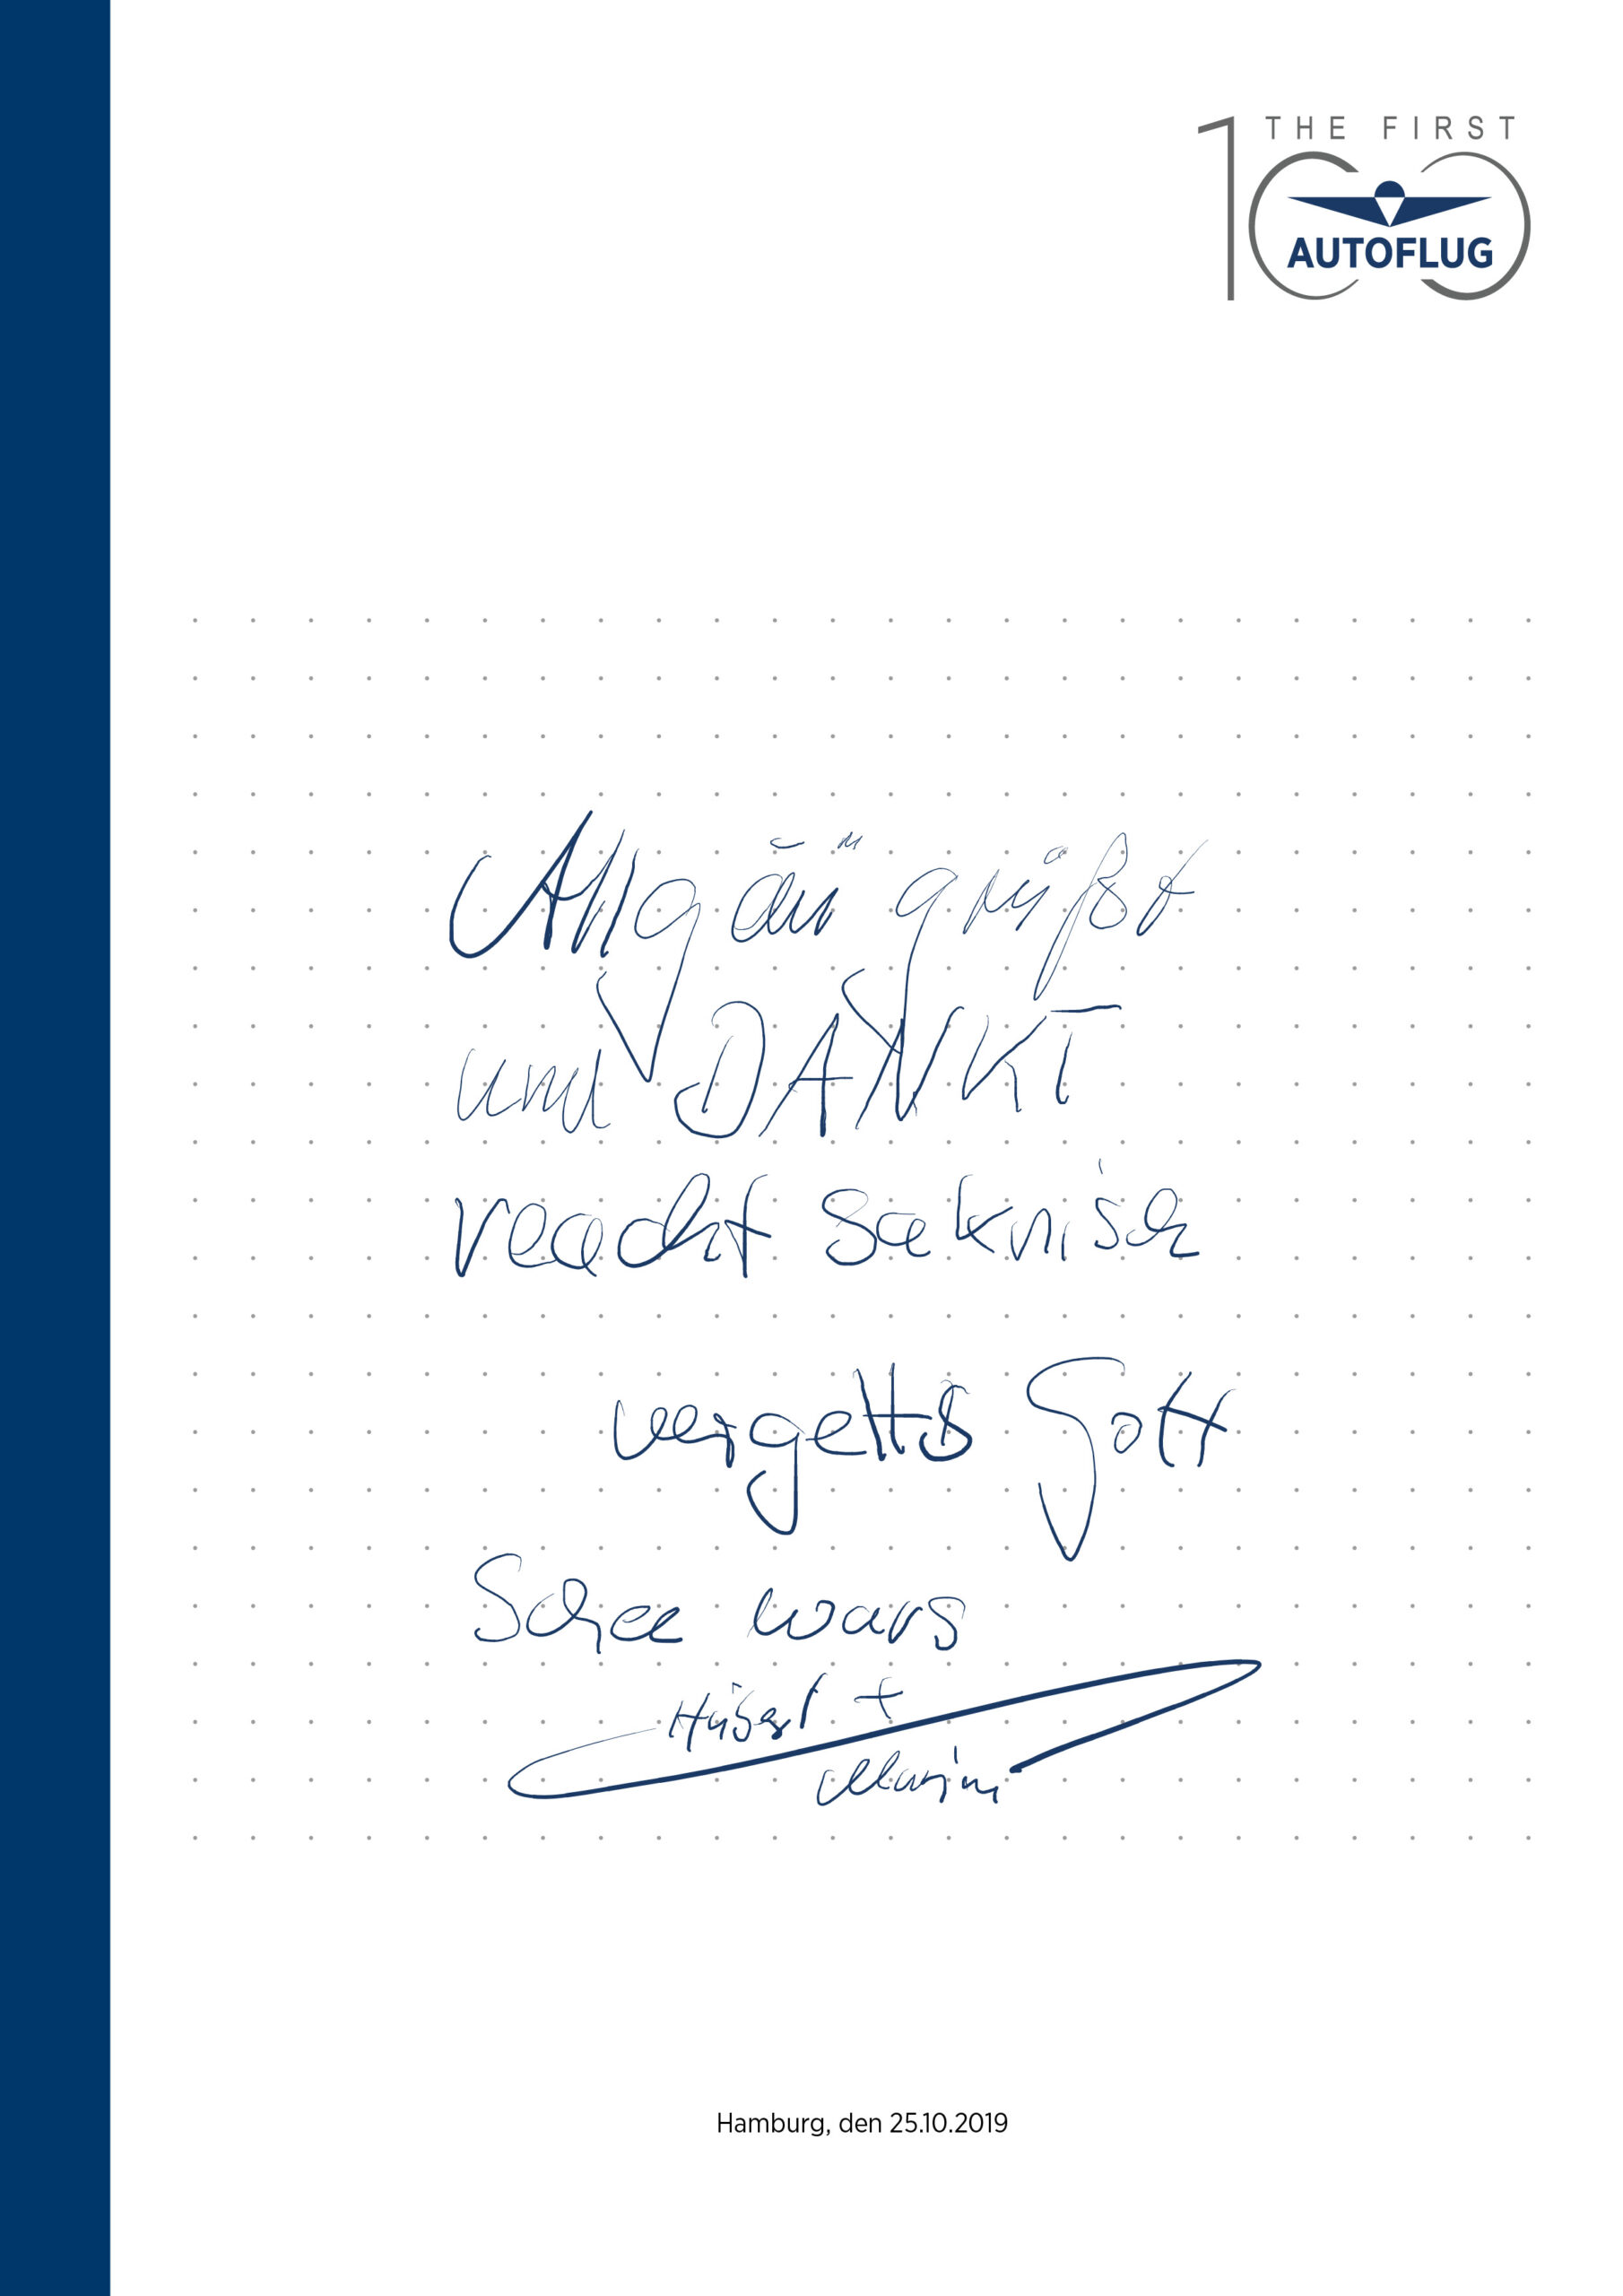 THE FIRST
100
AUTOFLUG
Allgäu grüßt
und DANKT
reacht
vergelts Gott
Schee wars
+
Hamburg, den 25.10.2019